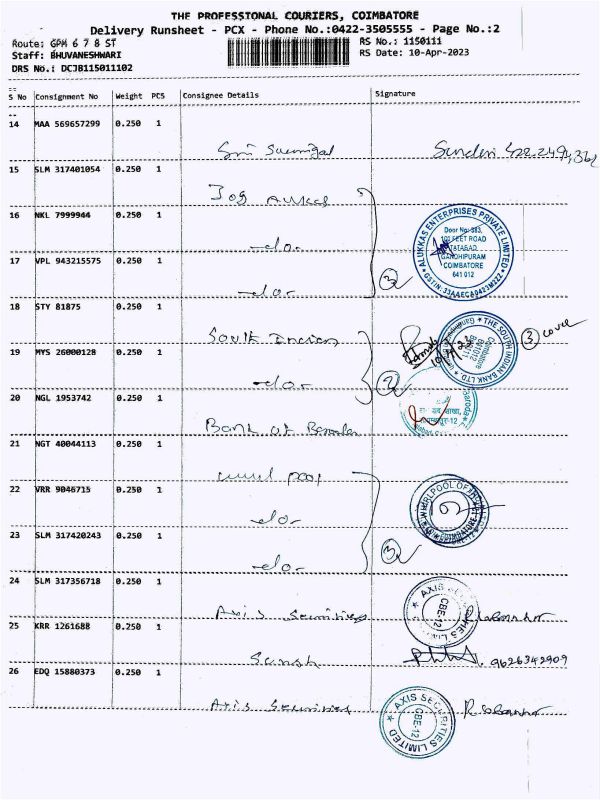 THE PROFESSIONAL COURIERS, COIMBATORE
Delivery Runsheet - PCX - Phone No.:0422-3505555 - Page No.:2
Route: GPM 6 7 8 ST
RS No.: 1150111
Staff: BHUVANESHWARI
RS Date: 10-Apr-2023
DRS No.: DCJB115011102
S No Consignment No Weight PCS Consignee Details Signature
14 MAA 569657299 0.250 1
Sri
15 SLM 317401054 0.250 1
Jos Alukkas
16 NKL 7999944 0.250 1
-do-
17 VPL 943215575 0.250 1
-do-
3
ALUKKAS ENTERPRISES PRIVATE LIMITED
Door No: 383,
100 FEET ROAD
TATABAD
GANDHIPURAM
COIMBATORE
641 012
18 STY 81875 0.250 1
South Indian
THE SOUTH INDIAN BANK LTD
Coimbatore
641012
3 cover
19 MYS 26000128 0.250 1
-do-
2
20 NGL 1953742 0.250 1
Bank of Baroda
21 NGT 40044113 0.250 1
whirl pool
22 VRR 9046715 0.250 1
-do-
WHIRLPOOL OF
COIMBATORE
23 SLM 317420243 0.250 1
-do-
3
24 SLM 317356718 0.250 1
Axis Securities
AXIS SECURITIES LIMITED
CBE-12
25 KRR 1261688 0.250 1
9626342909
26 EDQ 15880373 0.250 1
Axis Securities
AXIS SECURITIES LIMITED
CBE-12